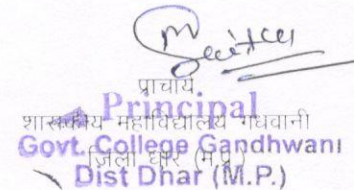 प्राचार्य
Principal
शासकीय महाविद्यालय गंधवानी
Govt. College Gandhwani
जिला धार (म.प्र.)
Dist Dhar (M.P.)